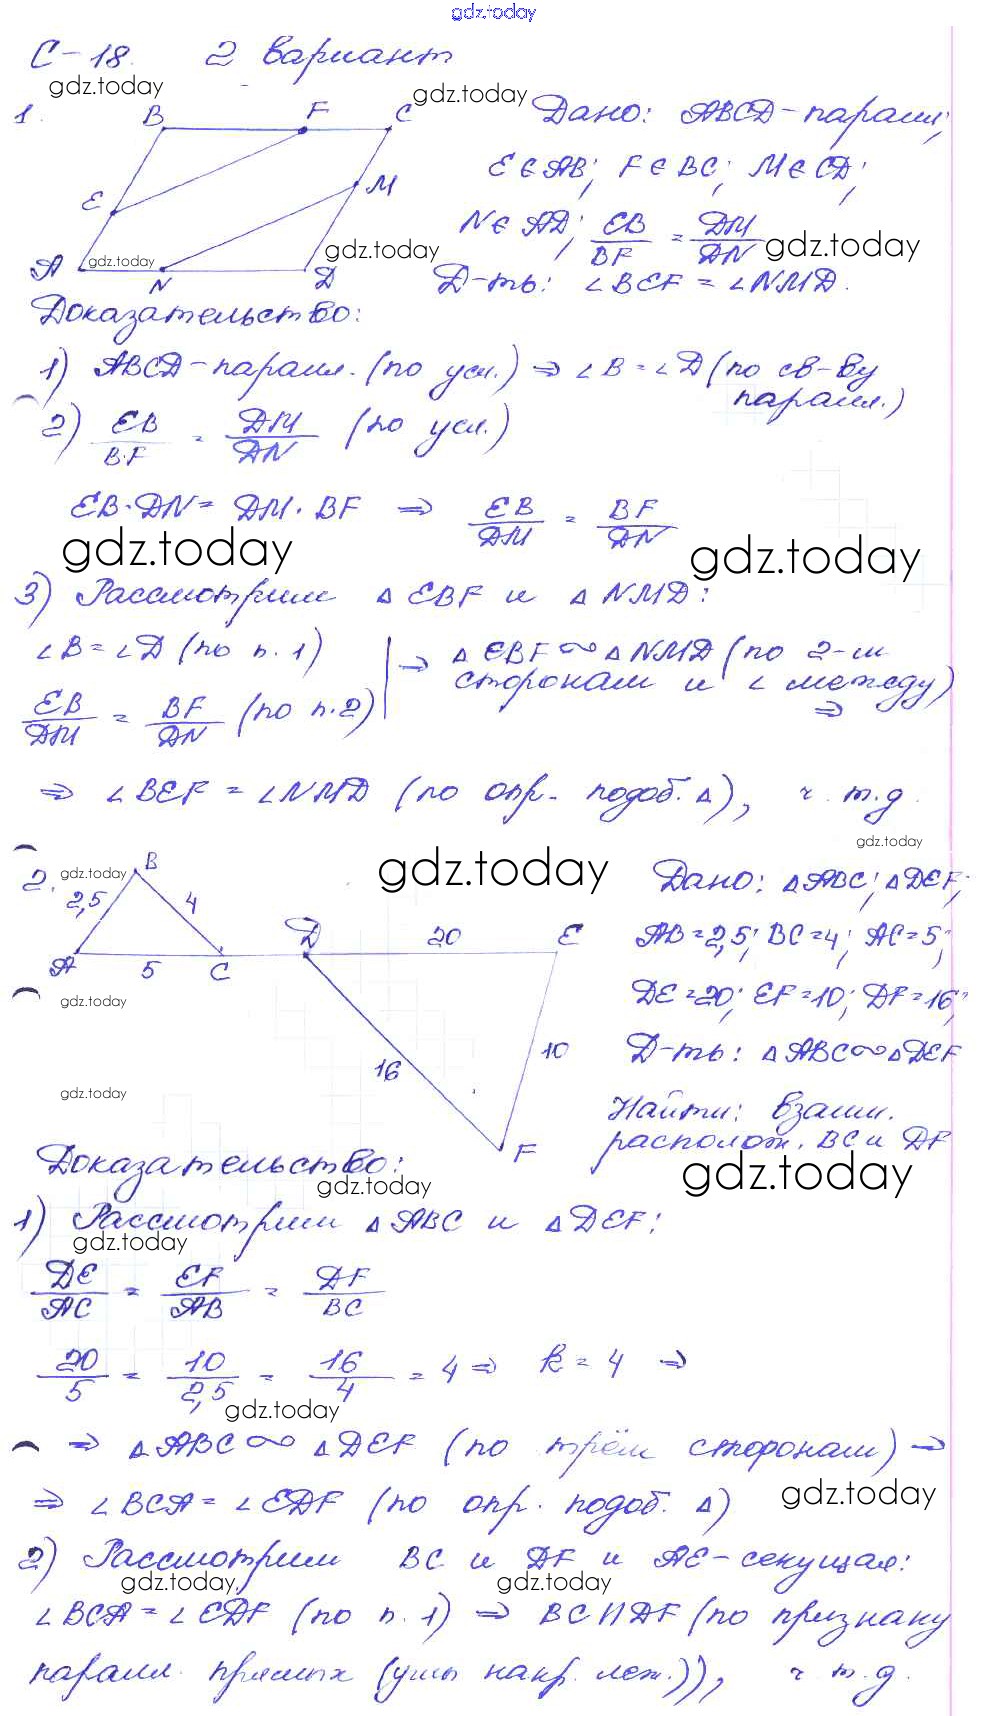 gdz.today
С-18. 2 вариант
gdz.today
gdz.today
1. B F C Дано: ABCD-паралл;
E M E∈AB; F∈BC; M∈CD;
A N D N∈AD; EB/BF = DM/DN
gdz.today gdz.today gdz.today
Д-ть: ∠BEF = ∠NMD.
Доказательство:
1) ABCD-паралл. (по усл.) ⇒ ∠B=∠D (по св-ву
паралл.)
2) EB/BF = DM/DN (по усл.)
EB·DN = DM·BF ⇒ EB/DM = BF/DN
gdz.today gdz.today
3) Рассмотрим △EBF и △NMD:
∠B=∠D (по п. 1) ⇒ △EBF∾△NMD (по 2-м
сторонам и ∠ между)
EB/DM = BF/DN (по п.2) ⇒
⇒ ∠BEF = ∠NMD (по опр. подоб. △), ч.т.д.
gdz.today
2. gdz.today B gdz.today Дано: △ABC; △DEF;
2,5 4 D 20 E AB=2,5; BC=4; AC=5;
A 5 C
gdz.today DE=20; EF=10; DF=16;
16 10 Д-ть: △ABC∾△DEF
gdz.today Найти: взаим.
F располож. BC и DF
Доказательство:
gdz.today gdz.today
1) Рассмотрим △ABC и △DEF:
gdz.today
DE/AC = EF/AB = DF/BC
20/5 = 10/2,5 = 16/4 = 4 ⇒ k = 4 ⇒
gdz.today
⇒ △ABC∾△DEF (по трём сторонам) ⇒
⇒ ∠BCA = ∠EDF (по опр. подоб. △) gdz.today
2) Рассмотрим BC и DF и AE-секущая:
gdz.today, gdz.today
∠BCA=∠EDF (по п. 1) ⇒ BC∥DF (по признаку
паралл. прямых (углы накр. леж.)), ч.т.д.